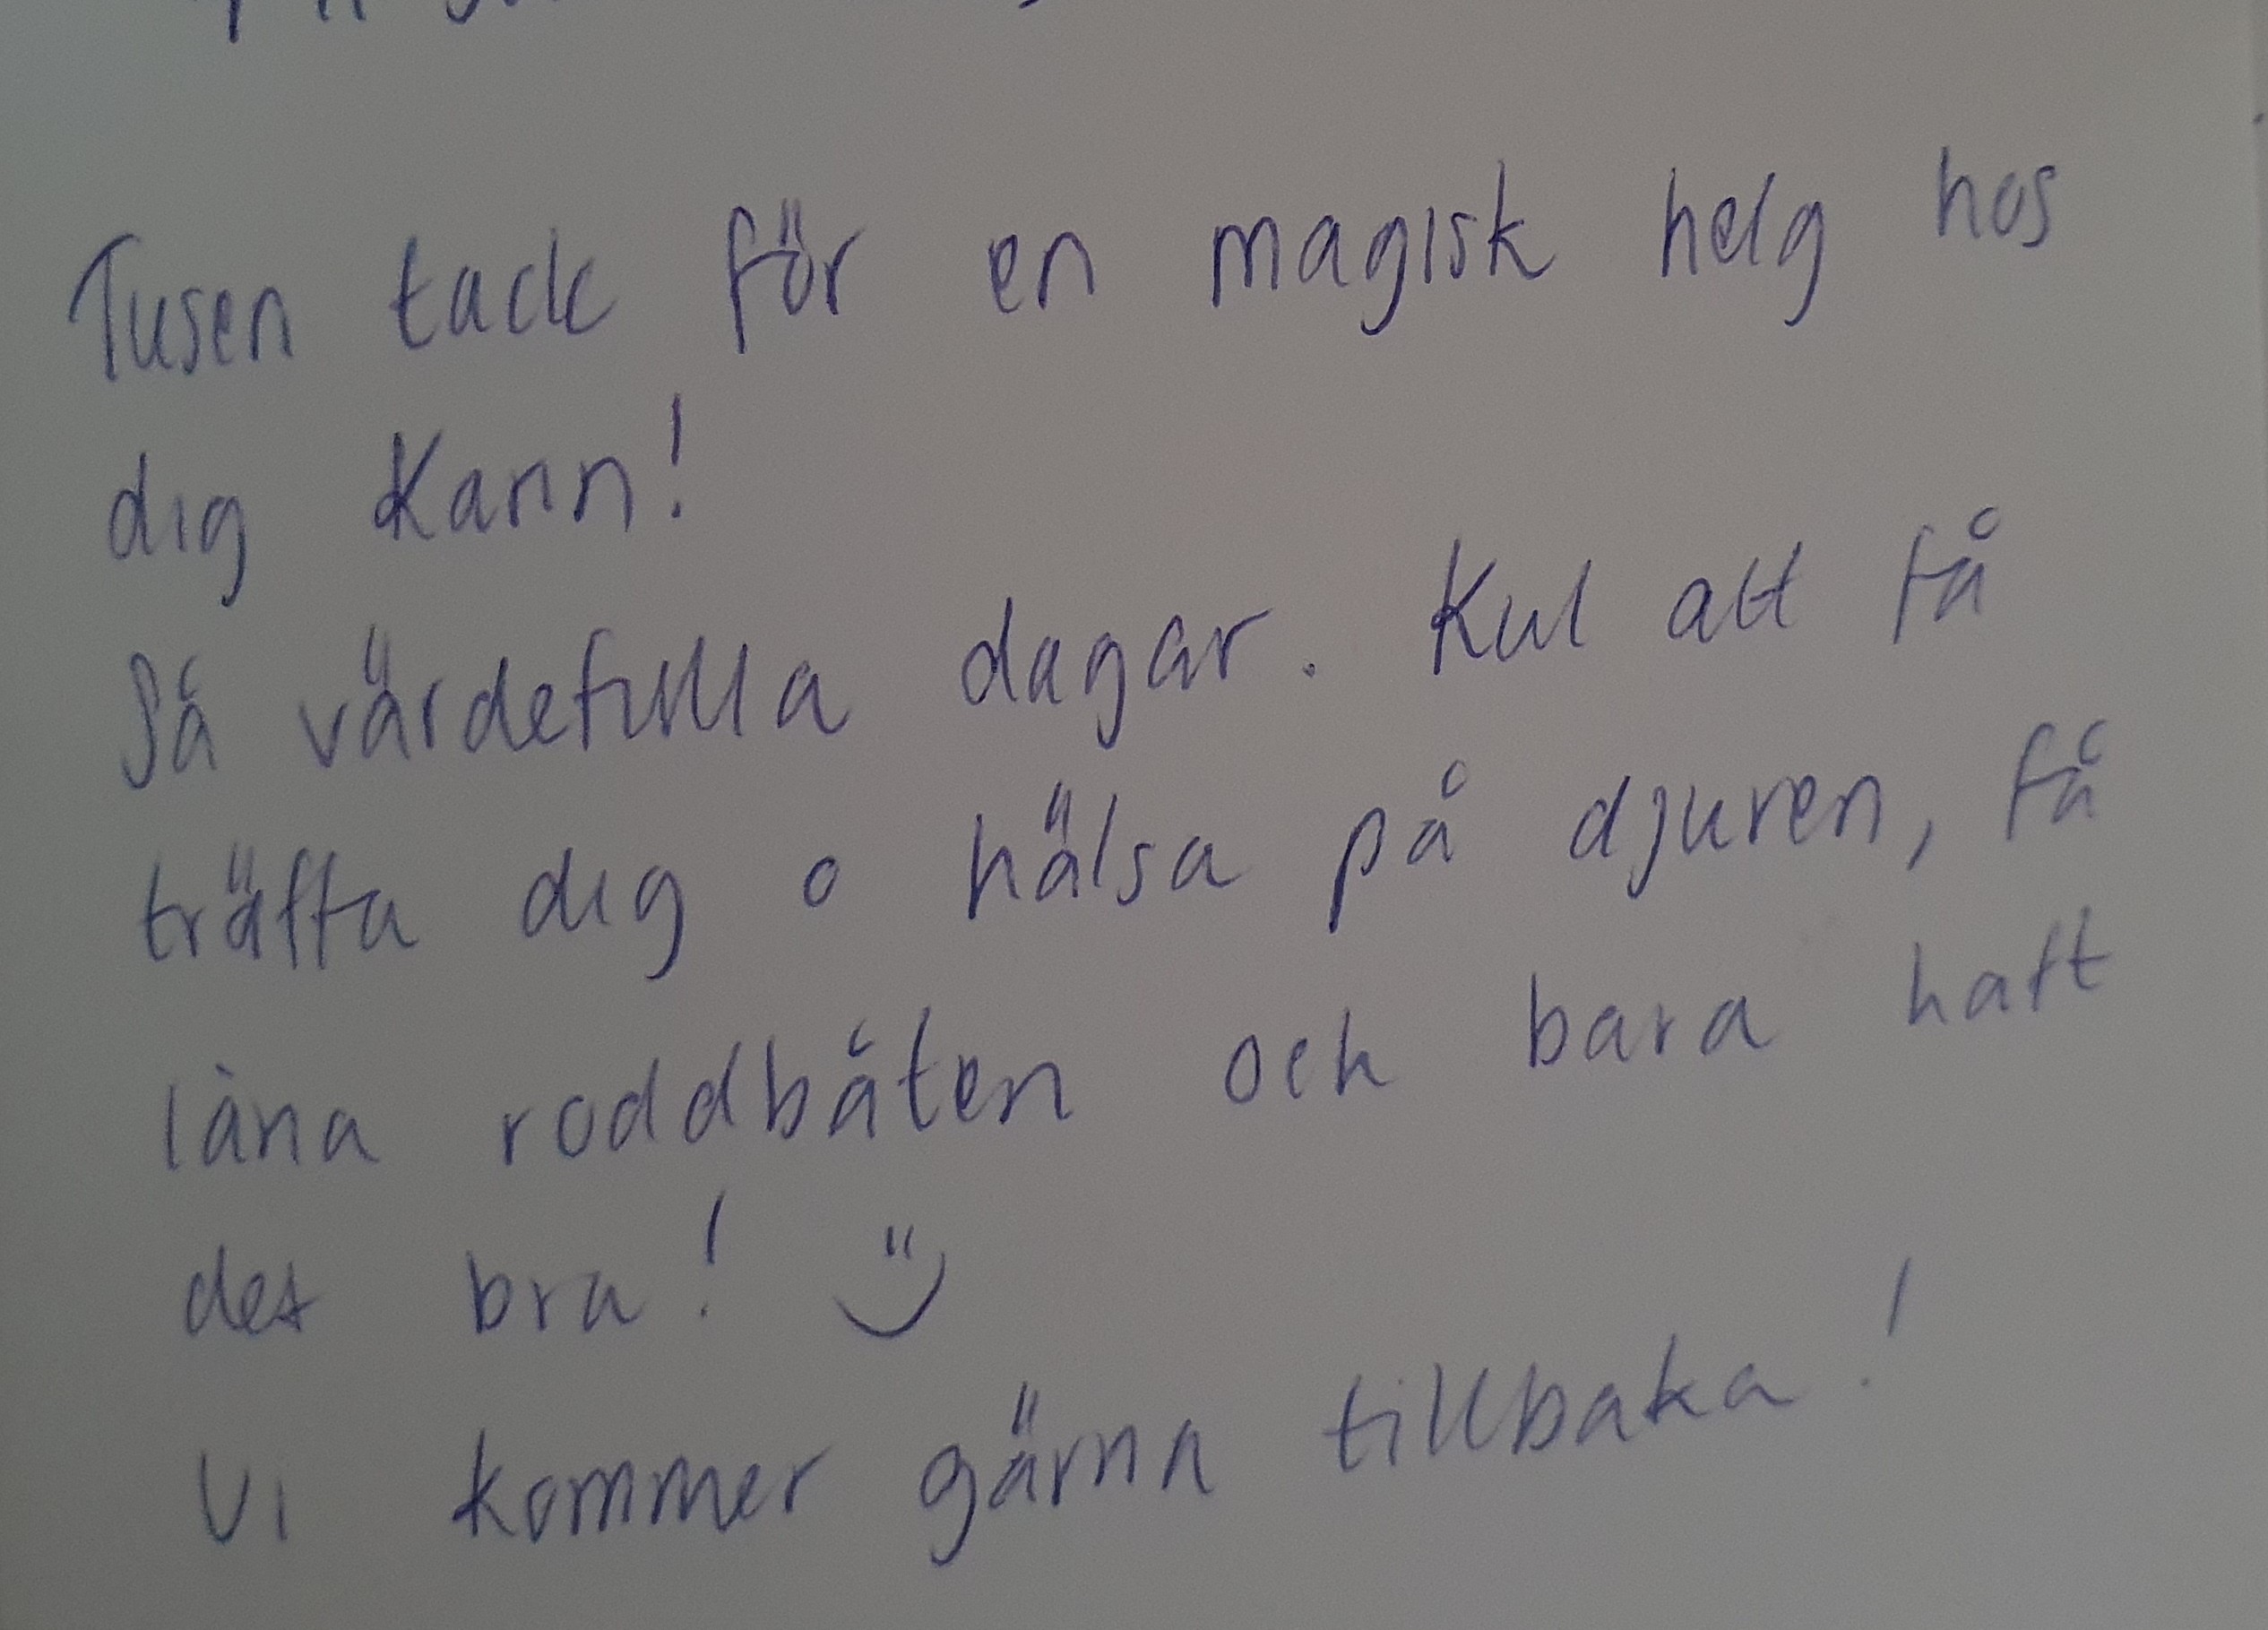 Tusen tack för en magisk helg hos
dig Karin!
Så värdefulla dagar. Kul att få
träffa dig o hälsa på djuren, få
låna roddbåten och bara haft
det bra! :)
Vi kommer gärna tillbaka!